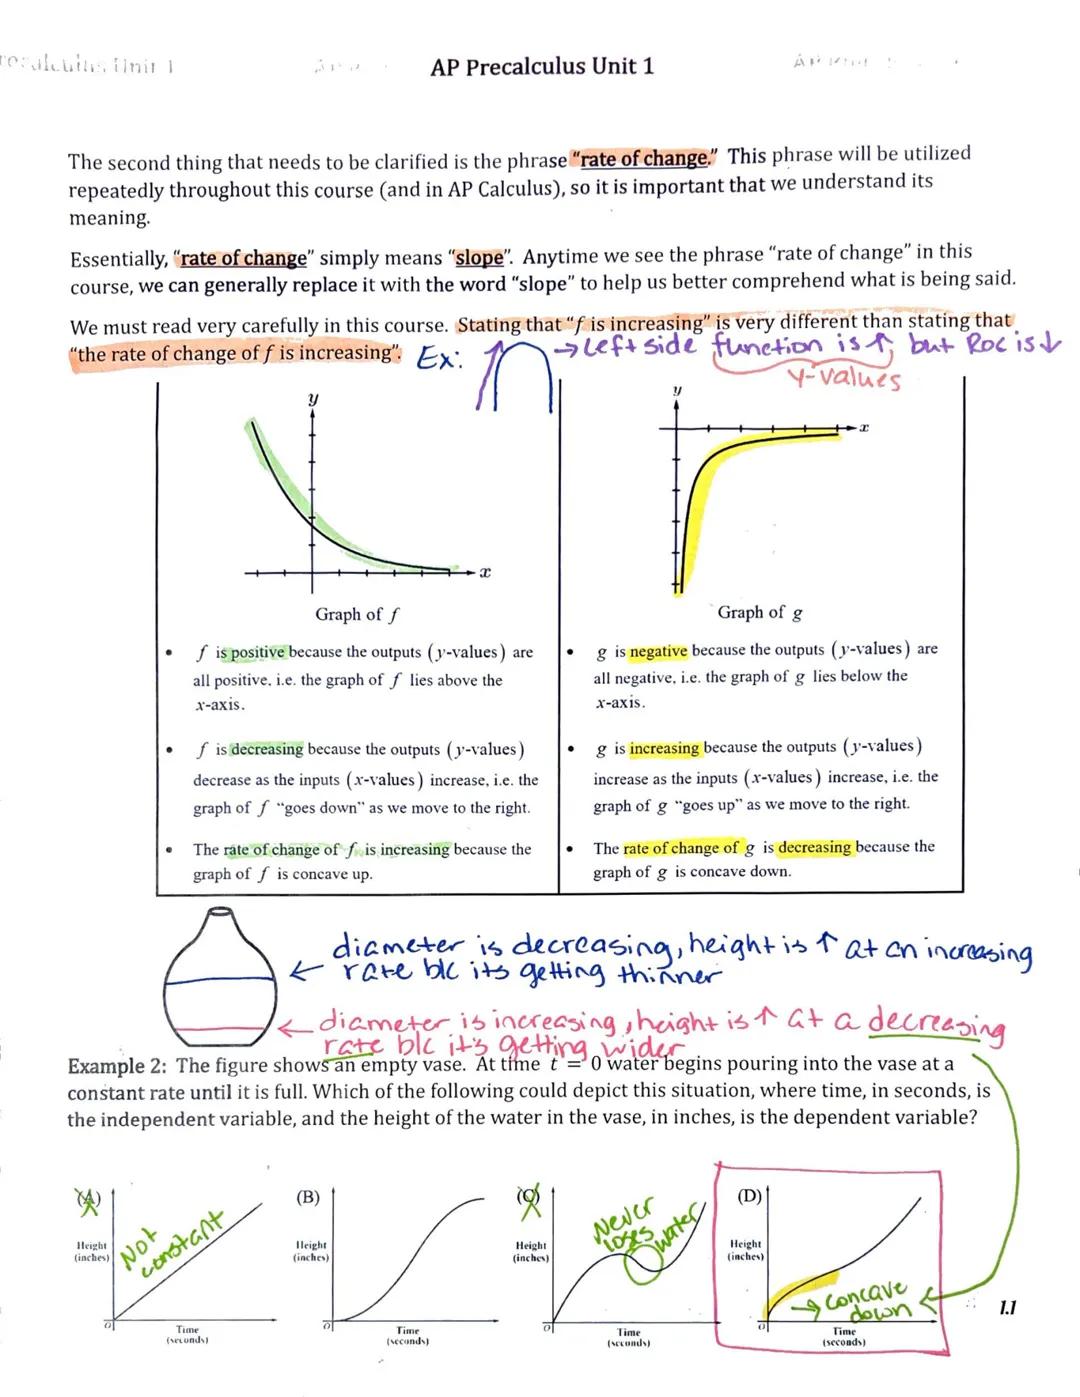 AP Precalculus Unit 1
The second thing that needs to be clarified is the phrase "rate of change." This phrase will be utilized
repeatedly throughout this course (and in AP Calculus), so it is important that we understand its
meaning.
Essentially, "rate of change" simply means "slope". Anytime we see the phrase "rate of change" in this
course, we can generally replace it with the word "slope" to help us better comprehend what is being said.
We must read very carefully in this course. Stating that "f is increasing" is very different than stating that
"the rate of change of f is increasing".
Ex: → Left side function is ↑, but Roc is ↓
y-values
y
x
Graph of f
• f is positive because the outputs (y-values) are
all positive, i.e. the graph of f lies above the
x-axis.
• f is decreasing because the outputs (y-values)
decrease as the inputs (x-values) increase, i.e. the
graph of f "goes down" as we move to the right.
• The rate of change of f is increasing because the
graph of f is concave up.
y
x
Graph of g
• g is negative because the outputs (y-values) are
all negative, i.e. the graph of g lies below the
x-axis.
• g is increasing because the outputs (y-values)
increase as the inputs (x-values) increase, i.e. the
graph of g "goes up" as we move to the right.
• The rate of change of g is decreasing because the
graph of g is concave down.
diameter is decreasing, height is ↑ at an increasing
← rate b/c its getting thinner
← diameter is increasing, height is ↑ at a decreasing
rate b/c it's getting wider
Example 2: The figure shows an empty vase. At time t = 0 water begins pouring into the vase at a
constant rate until it is full. Which of the following could depict this situation, where time, in seconds, is
the independent variable, and the height of the water in the vase, in inches, is the dependent variable?
(A)
Height
(inches)
Not
constant
O
Time
(seconds)
(B)
Height
(inches)
O
Time
(seconds)
(C)
Height
(inches)
Never
loses water
O
Time
(seconds)
(D)
Height
(inches)
→ concave
down
O
Time
(seconds)
1.1